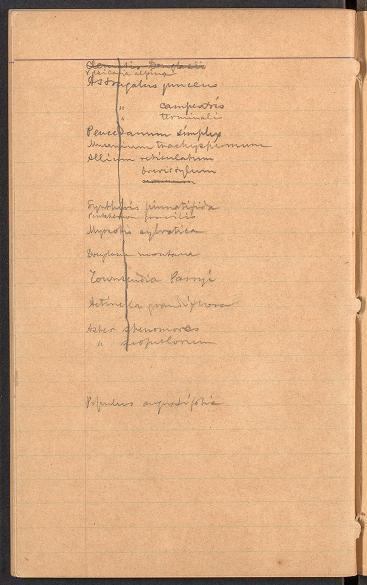 Clematis Douglasii
Vesicaria alpina
Astragalus junceus
" campestris
" terminalis
Peucedanum simplex
Musenium trachyspermum
Allium reticulatum
brevistylum
Synthyris pinnatifida
Pentstemon gracilis
Myosotis sylvatica
Douglasia montana
Townsendia Parryi
Actinela grandiflora
Aster stenomeres
" scopulorum
Populus angustifolia